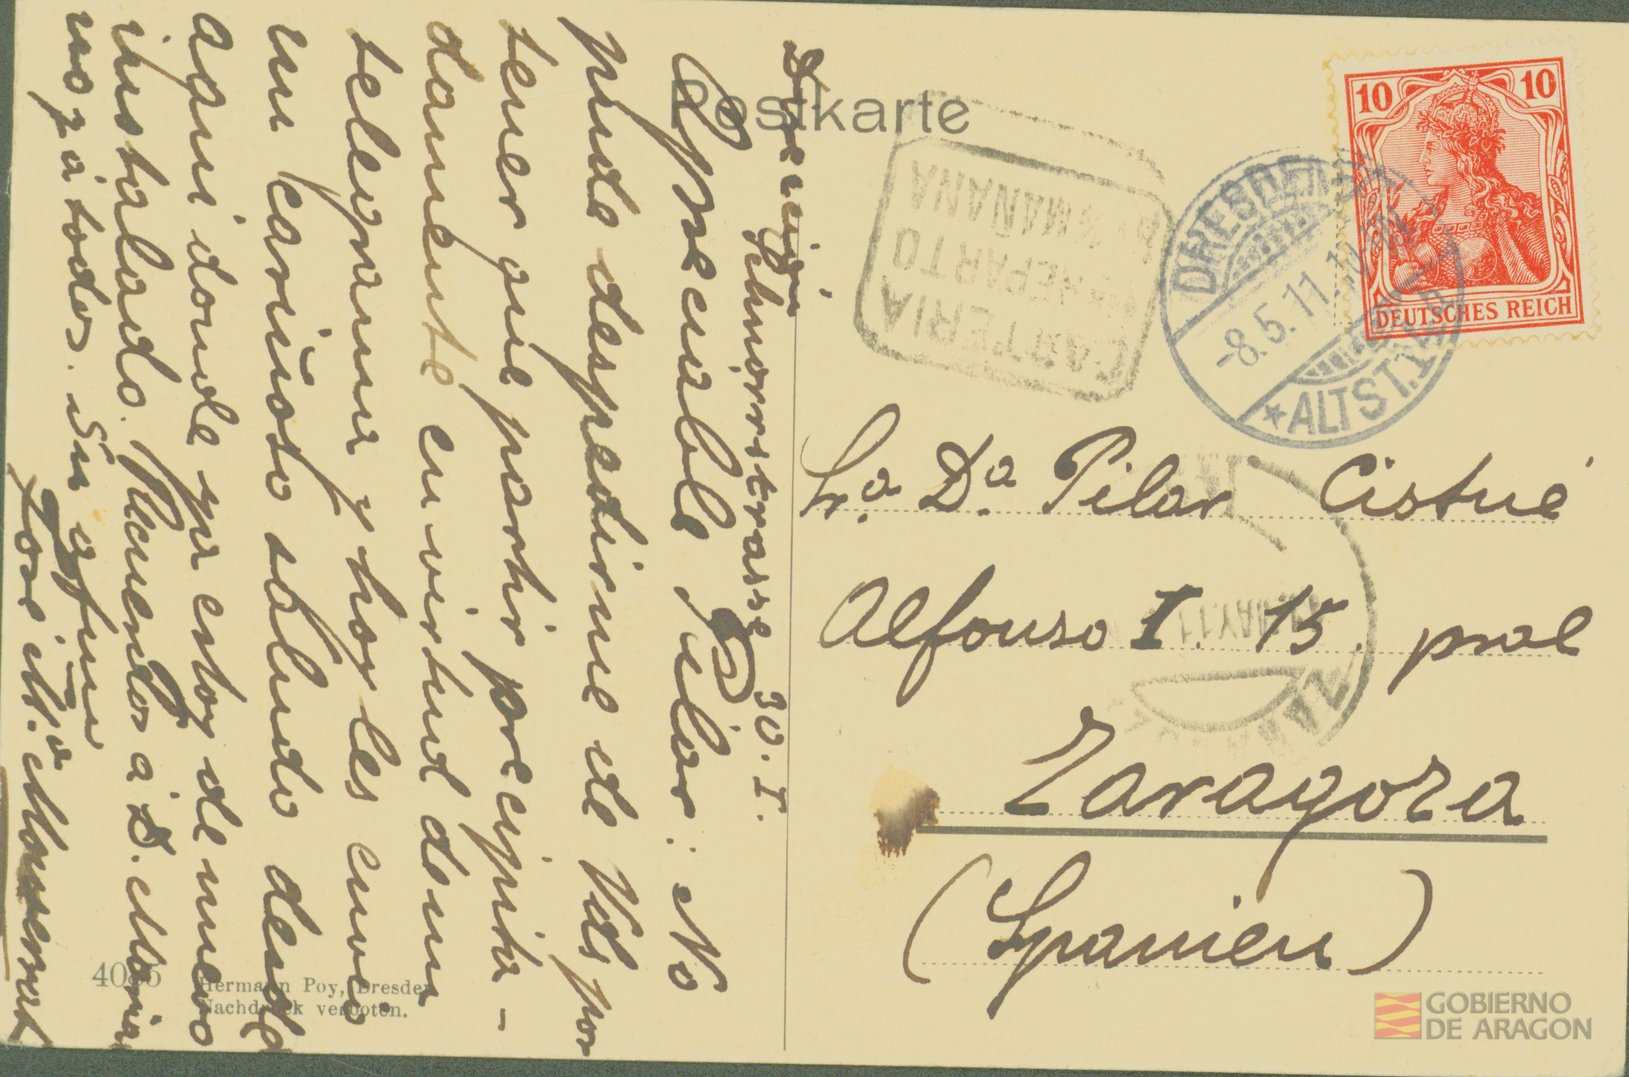 Postkarte
10 10
DEUTSCHES REICH
DRESDEN
-8.5.11.
★ALTST.
CARTERIA
REPARTO
MAÑANA
MAY.11
ZARAGOZA
Sra. Da. Pilar Cistué
Alfonso I. 15. pral
Zaragoza
(Spanien)
Schnorrstrasse 30. I.
Apreciable Pilar: No
pude despedirme de Vds por
tener que partir precipita-
damente en virtud de un
telegrama y hoy les envio
un cariñoso saludo desde
aqui donde ya estoy de nuevo
instalado. Recuerdos a D. Maria
no y a todos. Su afmo
Jose Ma. Monserrat
4085
Hermann Poy, Dresden
Nachdruck verboten.
GOBIERNO
DE ARAGON